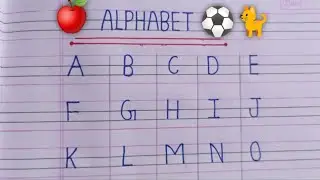 ALPHABET
A B C D E
F G H I J
K L M N O